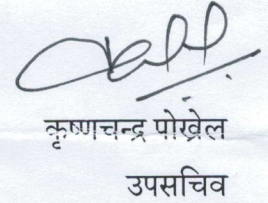 कृष्णचन्द्र पोख्रेल
उपसचिव